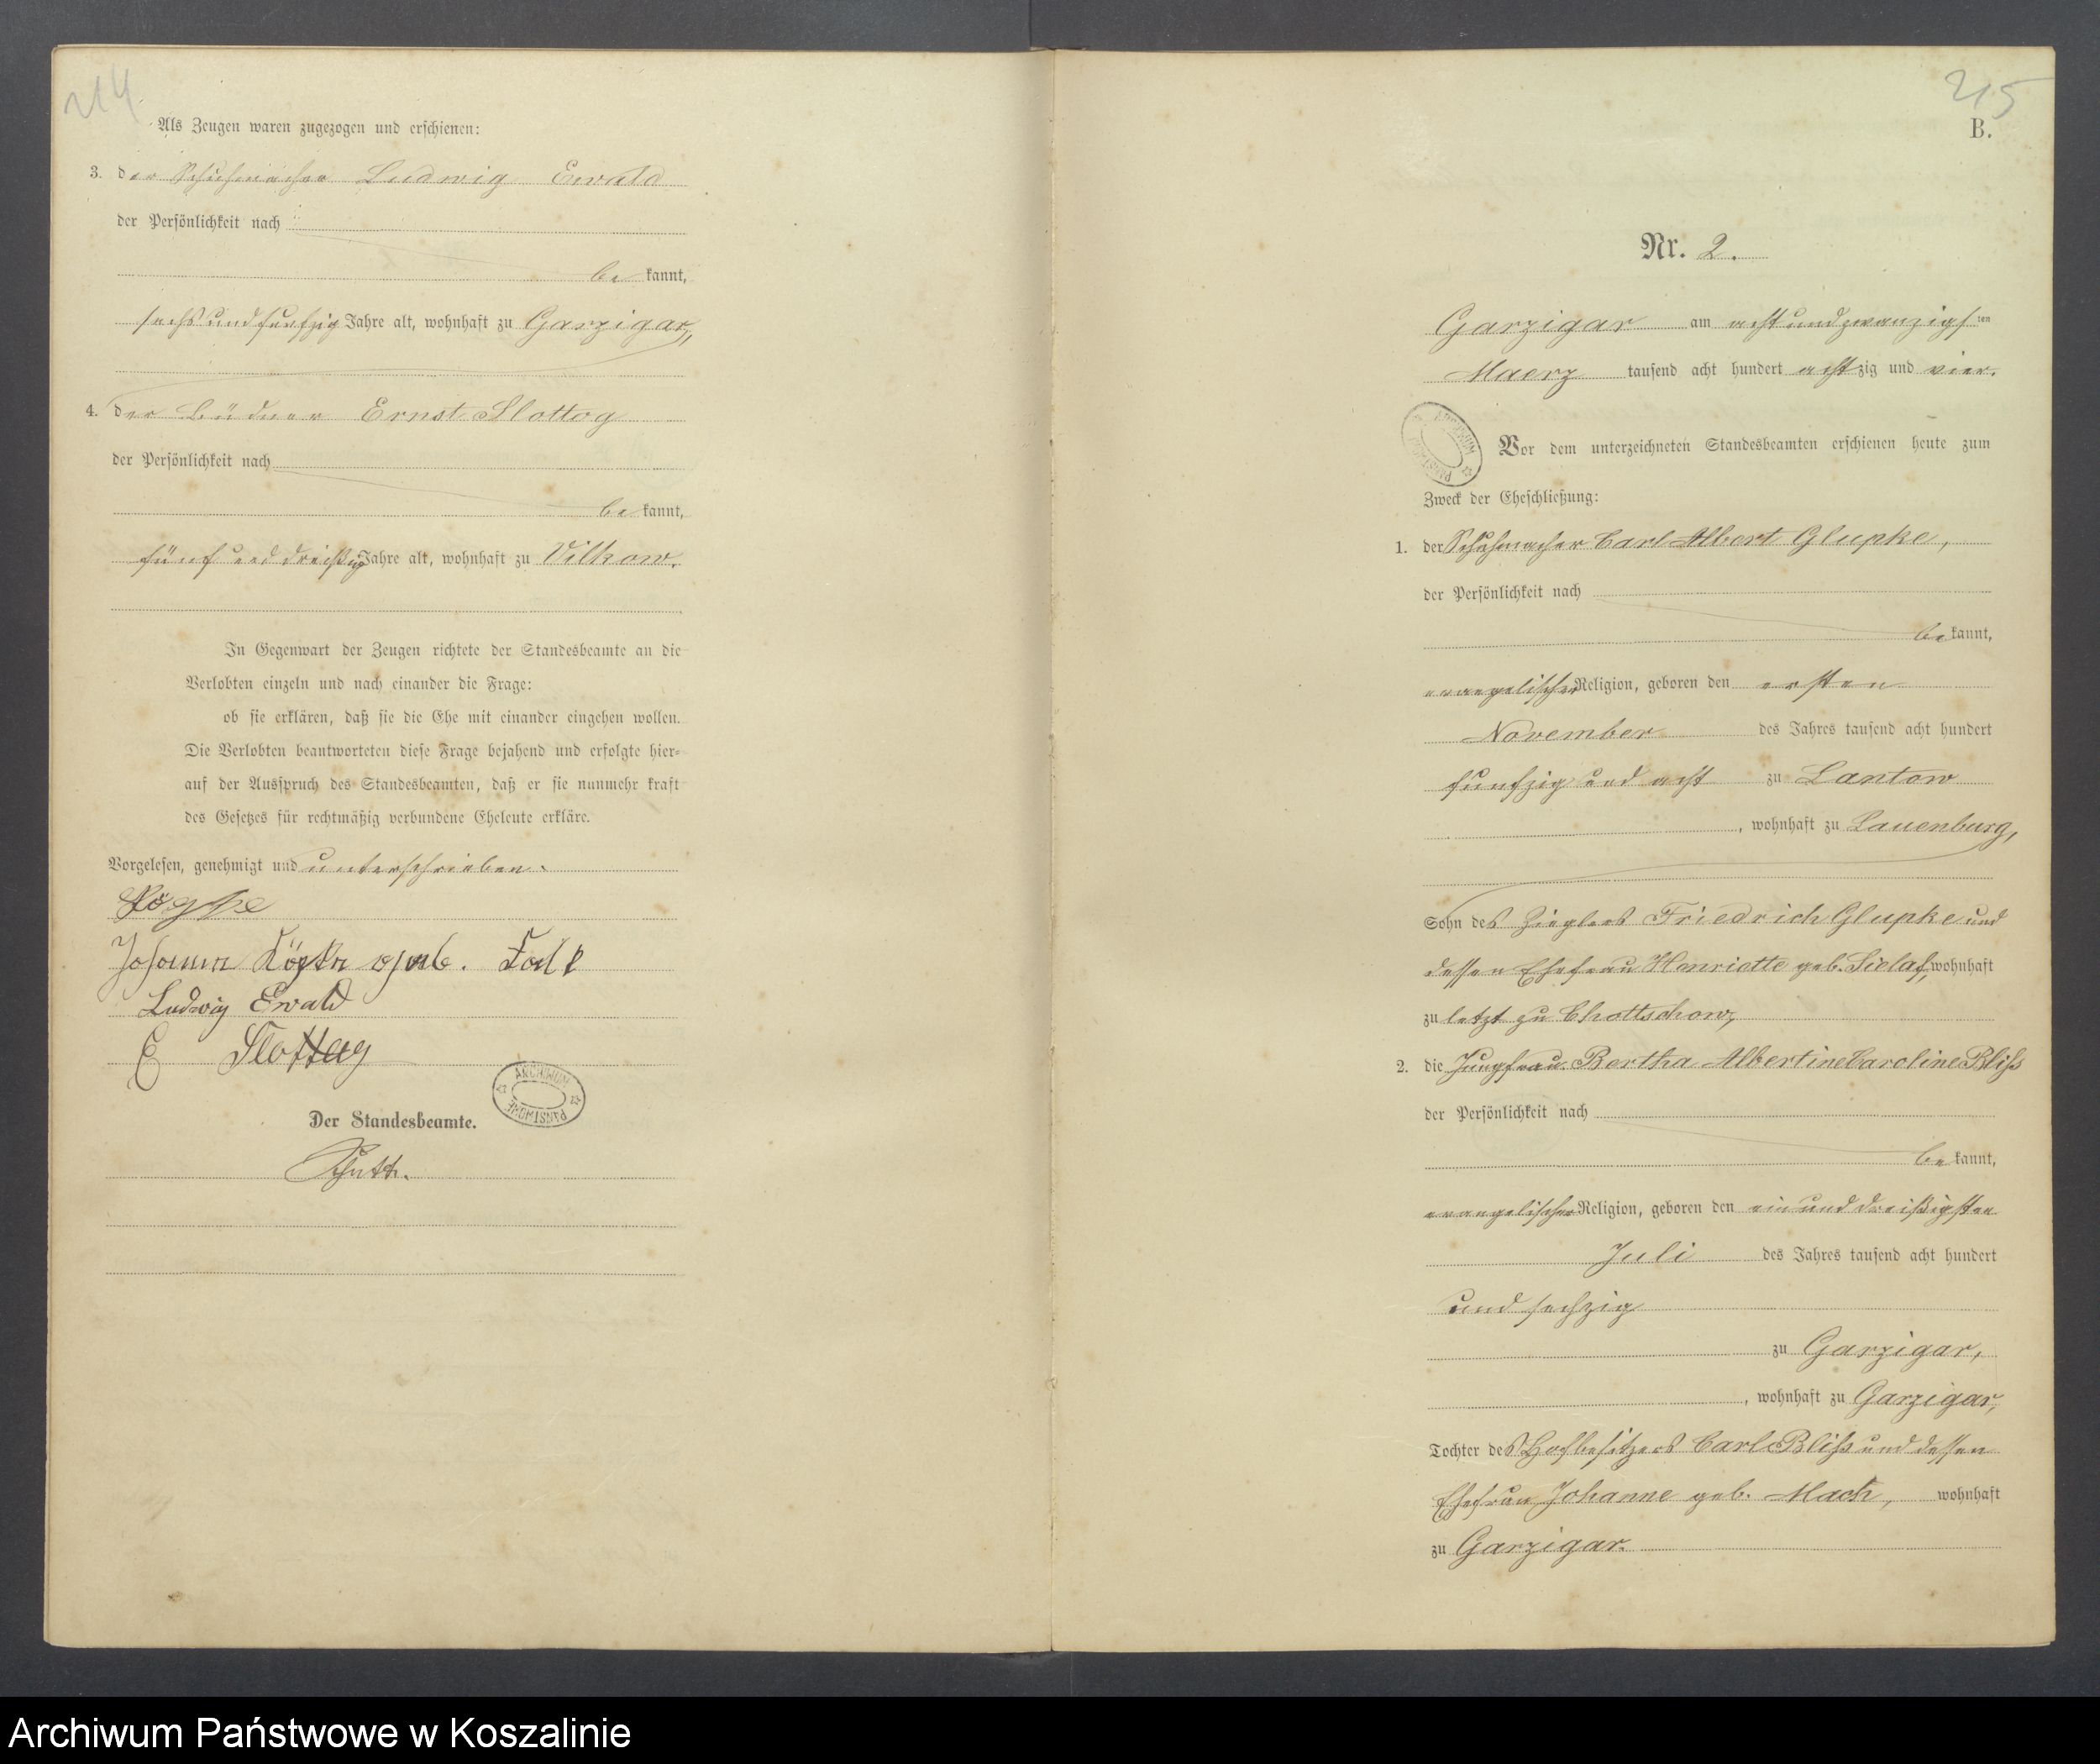 214
Als Zeugen waren zugezogen und erschienen:
3. der Schuhmacher Ludwig Ewald
der Persönlichkeit nach
be kannt,
sechs und funfzig Jahre alt, wohnhaft zu Garzigar,
4. der Büdner Ernst Slottog
der Persönlichkeit nach
be kannt,
fünf und dreißig Jahre alt, wohnhaft zu Vilkow.
In Gegenwart der Zeugen richtete der Standesbeamte an die
Verlobten einzeln und nach einander die Frage:
ob sie erklären, daß sie die Ehe mit einander eingehen wollen.
Die Verlobten beantworteten diese Frage bejahend und erfolgte hier-
auf der Ausspruch des Standesbeamten, daß er sie nunmehr kraft
des Gesetzes für rechtmäßig verbundene Eheleute erkläre.
Vorgelesen, genehmigt und unterschrieben.
Johann
Ludwig Ewald
E Slottog
ARCHIWUM PAŃSTWOWE
Der Standesbeamte.
215
B.
Nr. 2.
Garzigar am acht und zwanzigsten
Maerz tausend acht hundert achtzig und vier.
ARCHIWUM PAŃSTWOWE
Vor dem unterzeichneten Standesbeamten erschienen heute zum
Zweck der Eheschließung:
1. der Schuhmacher Carl Albert Glupke,
der Persönlichkeit nach
be kannt,
evangelischer Religion, geboren den ersten
November des Jahres tausend acht hundert
funfzig und acht zu Lantow
, wohnhaft zu Lauenburg,
Sohn des Zieglers Friedrich Glupke und
dessen Ehefrau Henriette geb. Sielaf, wohnhaft
zu letzt zu Chottschow,
2. die Jungfrau Bertha Albertine Caroline Bliß
der Persönlichkeit nach
be kannt,
evangelischer Religion, geboren den ein und dreißigsten
Juli des Jahres tausend acht hundert
und sechzig
zu Garzigar,
, wohnhaft zu Garzigar,
Tochter des Hofbesitzers Carl Bliß und dessen
Ehefrau Johanne geb. Mach, wohnhaft
zu Garzigar.
Archiwum Państwowe w Koszalinie